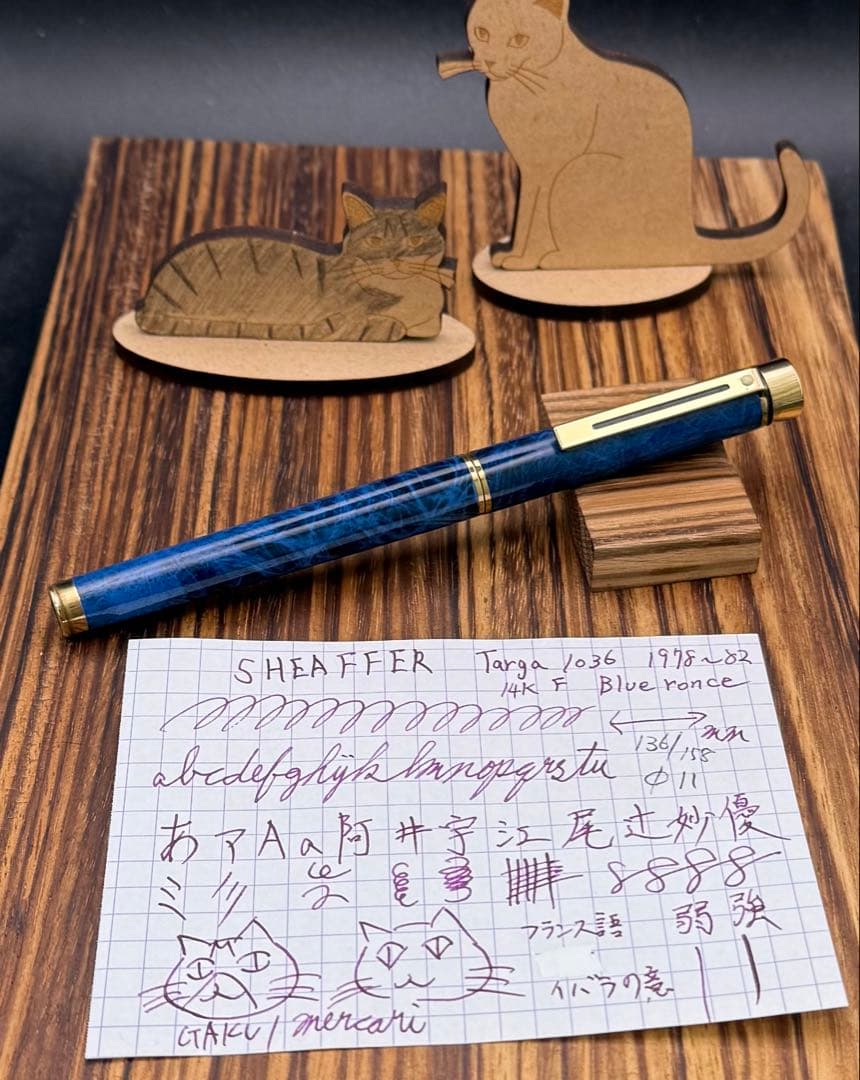 SHEAFFER Targa 1036 1978~82
14K F Blue ronce
136/158 mm
abcdefghijklmnopqrstu
φ11
あ ア A a 阿 井 宇 江 尾 辻 妙 優
フランス語 弱 強
イバラの意
GAKU/mercari